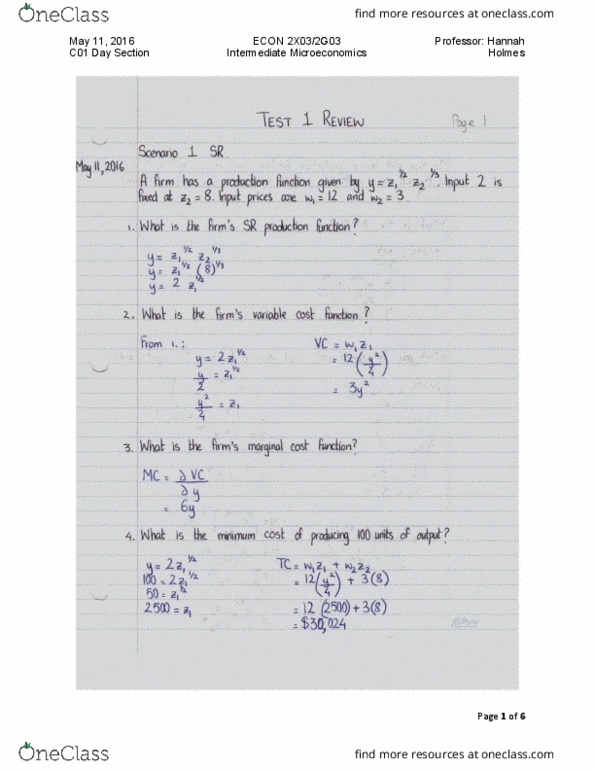 OneClass
find more resources at oneclass.com
May 11, 2016
C01 Day Section
ECON 2X03/2G03
Intermediate Microeconomics
Professor: Hannah
Holmes
TEST 1 REVIEW
Page 1
Scenario 1 SR
May 11, 2016
A firm has a production function given by y = z₁^1/2 z₂^1/3. Input 2 is
fixed at z₂ = 8. Input prices are w₁ = 12 and w₂ = 3.
1. What is the firm's SR production function?
y = z₁^1/2 z₂^1/3
y = z₁^1/2 (8)^1/3
y = 2 z₁^1/2
2. What is the firm's variable cost function?
From 1.:
y = 2z₁^1/2
y/2 = z₁^1/2
y²/4 = z₁
VC = w₁z₁
= 12(y²/4)
= 3y²
3. What is the firm's marginal cost function?
MC = ∂VC/∂y
= 6y
4. What is the minimum cost of producing 100 units of output?
y = 2z₁^1/2
100 = 2z₁^1/2
50 = z₁^1/2
2500 = z₁
TC = w₁z₁ + w₂z₂
= 12(y²/4) + 3(8)
= 12(2500) + 3(8)
= $30,024
Page 1 of 6
OneClass
find more resources at oneclass.com